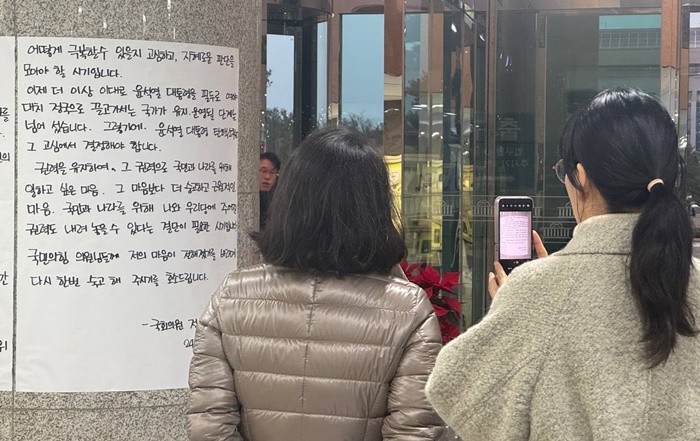 어떻게 극복할수 있을지 고심하고, 지혜로운 판단을
모아야 할 시기입니다.
이제 더 이상 이대로 윤석열 대통령을 필두로
대치 정국으로 끌고가서는 국가가 유지 운영될 단계는
넘어 섰습니다. 그렇기에. 윤석열 대통령
그 고심에서 결정해야 합니다.
권력을 유지하여. 그 권력으로 국민과 나라를 위해
일하고 싶은 마음. 그 마음보다 더 숭고하고
마음. 국민과 나라를 위해 나와 우리당에 주어진
권력도 내려 놓을 수 있다는 결단이 필요한 시기입니다
국민의힘 의원님들께 저의 마음이 전해지기를
다시 한번 숙고 해 주시기를 호소드립니다.
- 국회의원